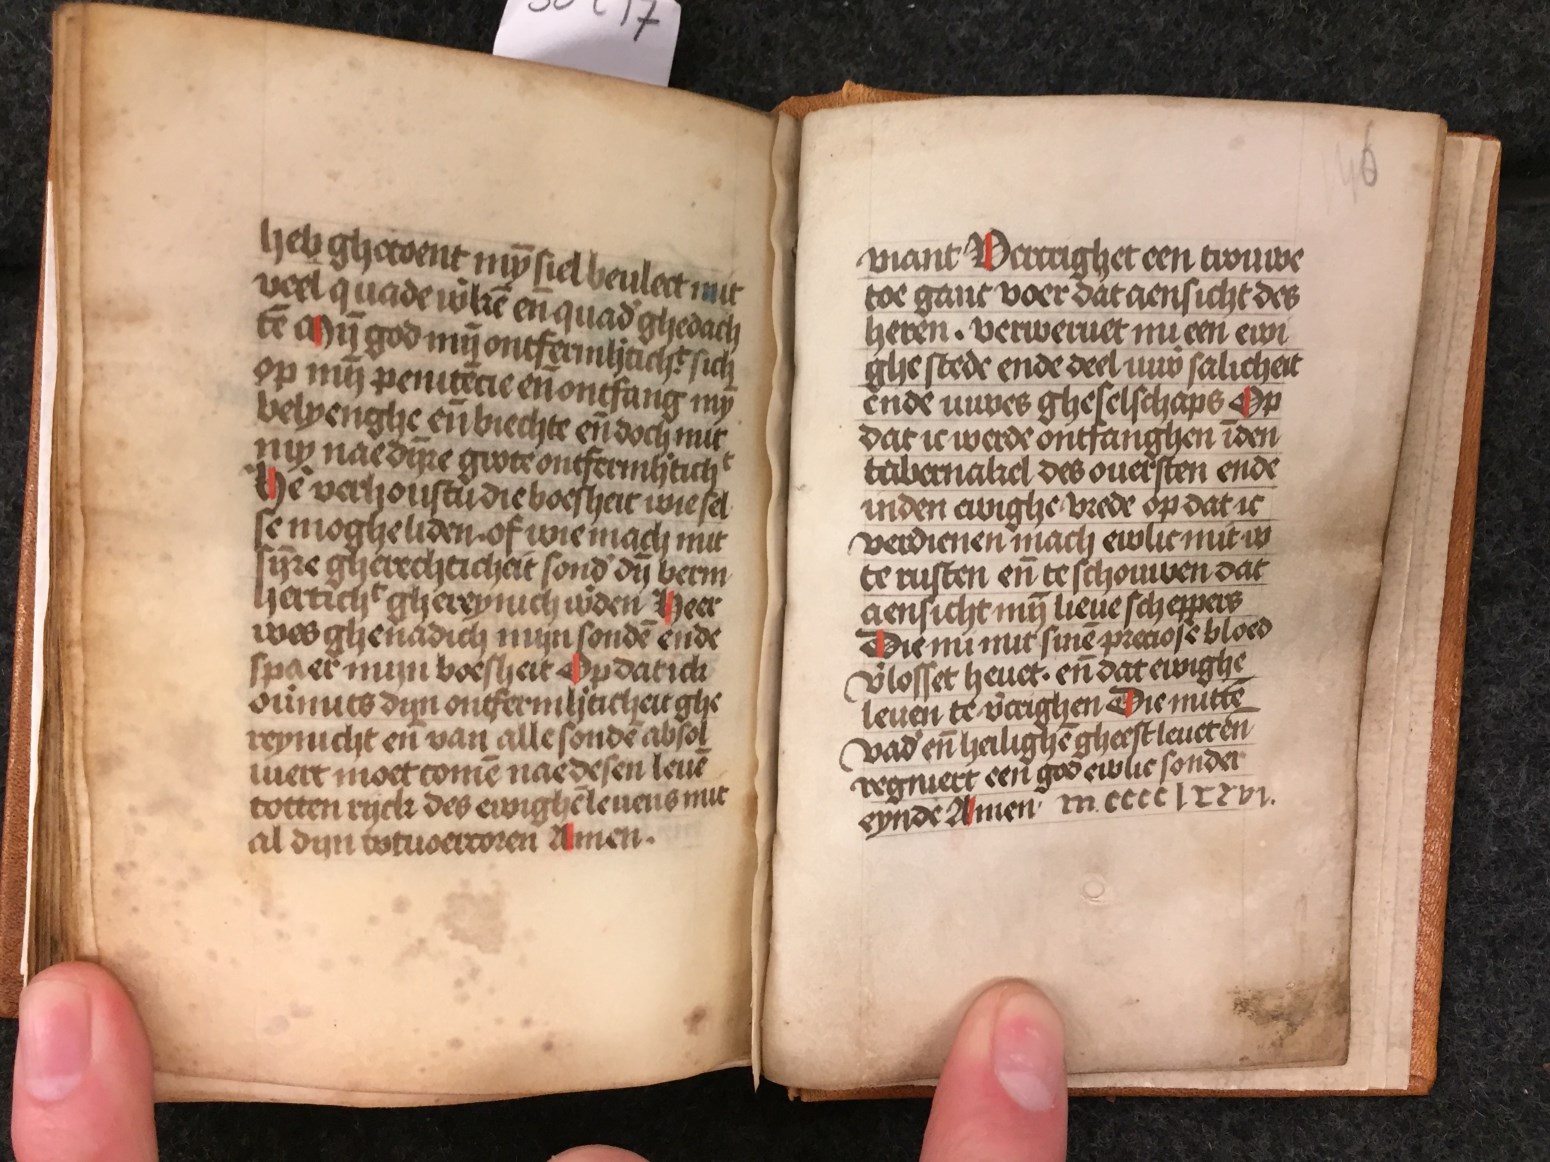 30 c 17
heb gheroent mȳ siel bevlect mit
veel quade w̉kē en̄ quad' ghedach
tē Mȳ god mȳ ontfermh̓ticht sich
op mȳ penitēcie en̄ ontfang mȳ
belyenghe en̄ biechte en̄ doch mit
my nae dīre grote ontfermh̓tich͛t
He' verhoufstu die boesheit wie sel
se moghe liden. of wie mach mit
sijre gherechticheit sond' dij berm
hertich͛t ghereynich w̓den Heer
wes ghenadich mijn sondē ende
spaer mijn boesheit Op dat ick
ou̓mits dijn ontfermh̓ticheit ghe
reynicht en̄ van alle sondē absol
uiert moet comē nae desen leuē
totten rijck des ewighē leuens mit
al dijn wtuercoren Amen.
146
viant Vercrighet een trouwe
toe gant voer dat aensicht des
heren. verweruet mi een ewi
ghe stede ende deel uw̓ salicheit
ende uuwes gheselschaps Op
dat ic werde ontfanghen īden
tabernakel des ouersten ende
inden ewighe vrede op dat ic
verdienen mach ewlic mit w
te rusten en̄ te schouwen dat
aensicht mȳ lieue scheppers
Die mi mit sinē preciose bloed
v̓losset heuet. en̄ dat ewighe
leuen te v̓crighen Die mittē
vad' en̄ heilighē gheest leuet en̄
regniert een god ewlic sonder
eynde Amen m.cccc lxxvi.